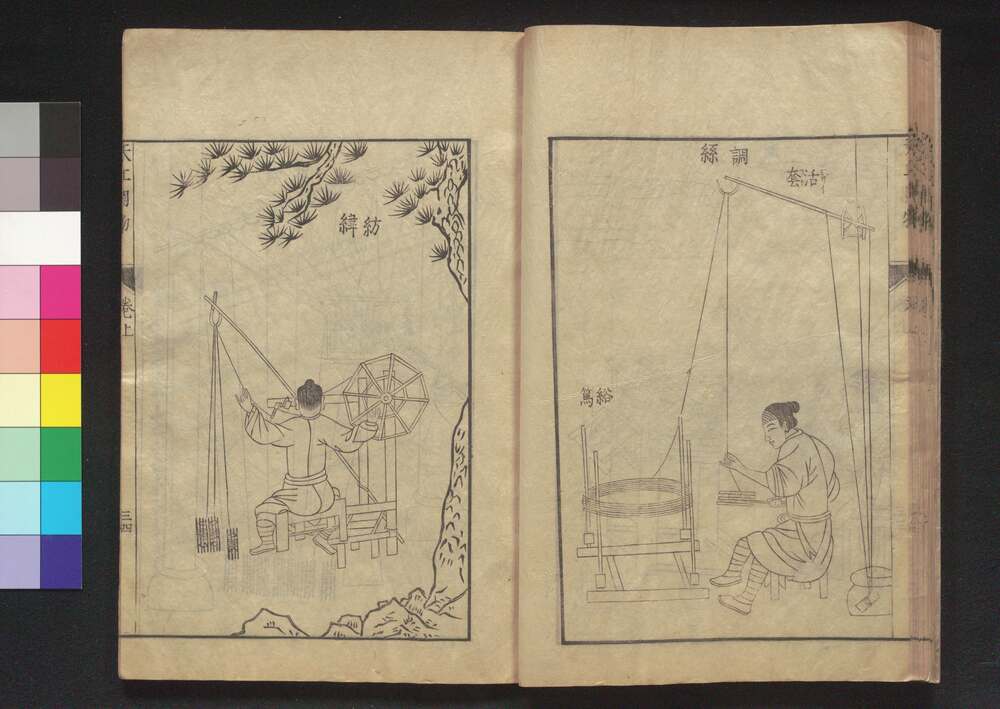 調絲
活套
絡篤
紡緯
天工開物
卷上
三四